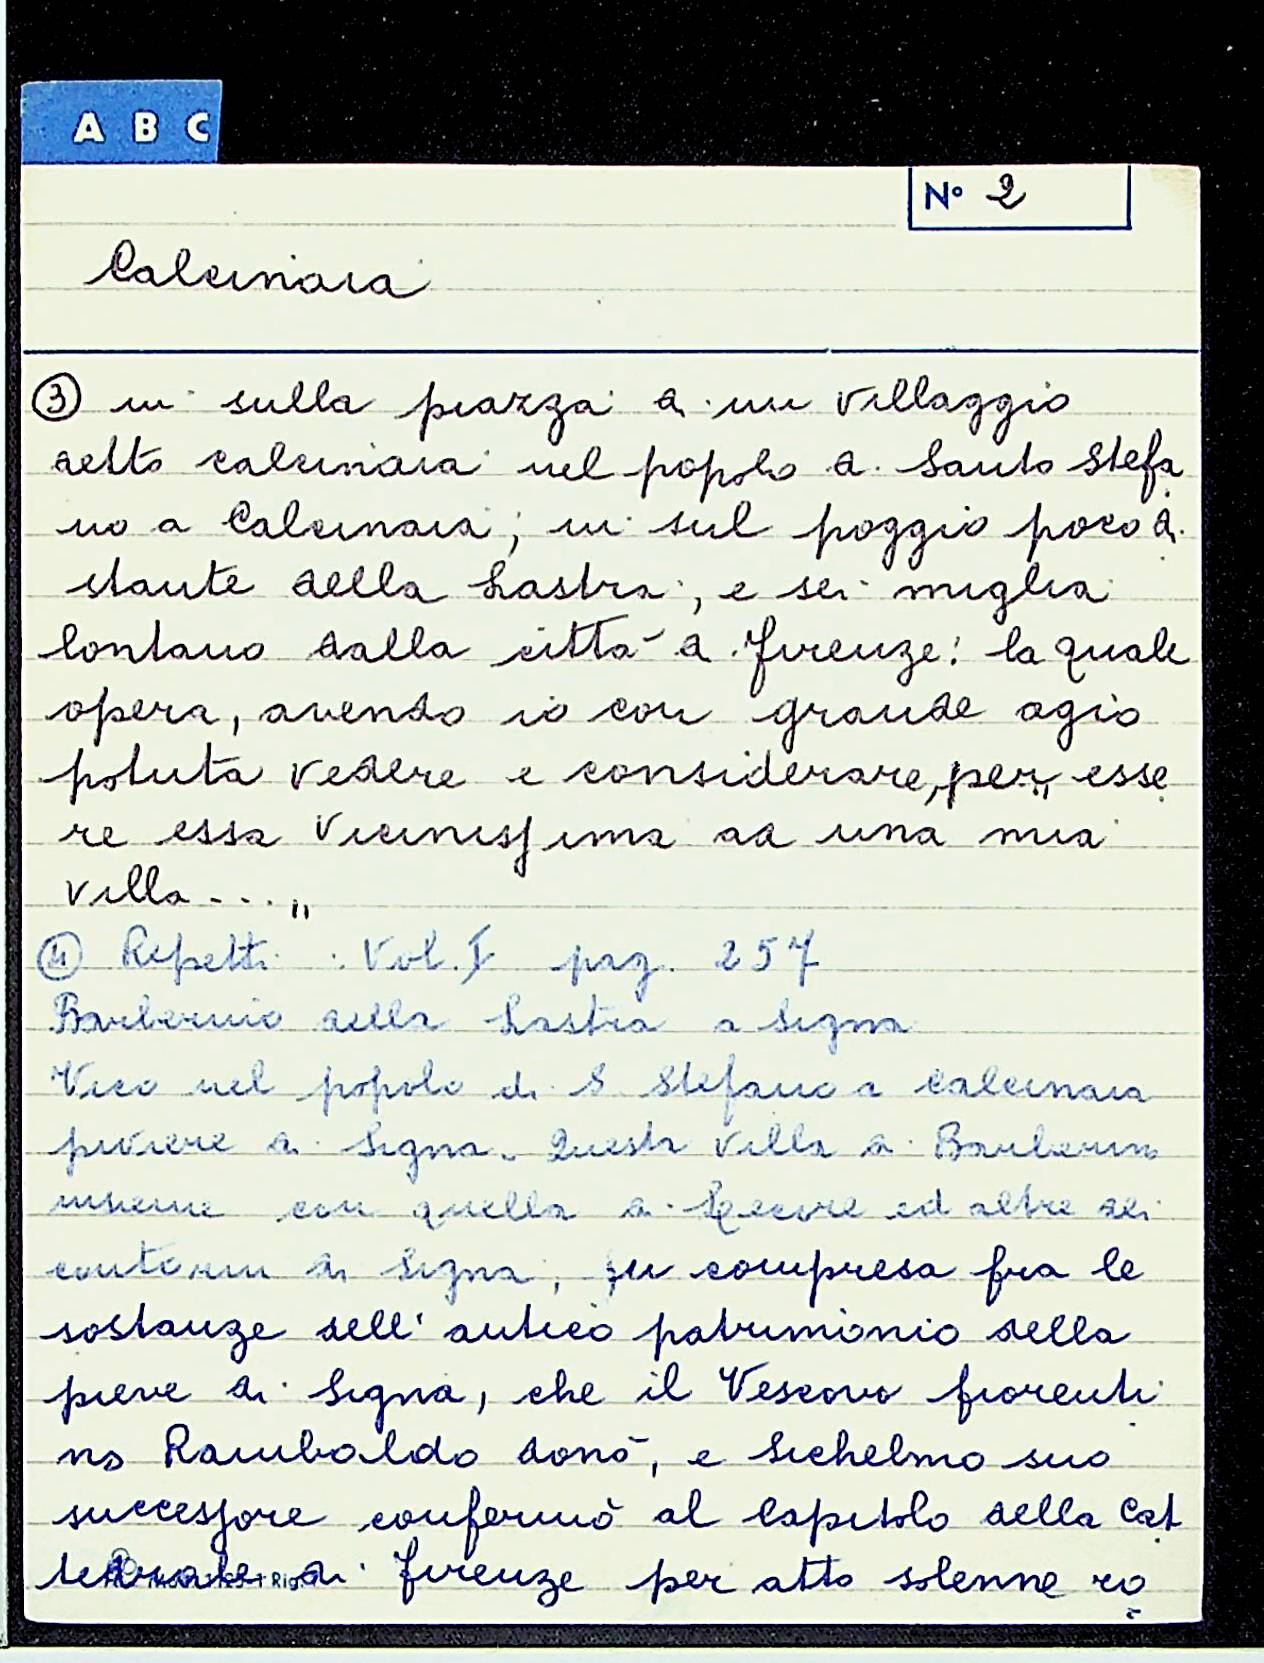 A B C
N° 2
Calcinaia
③ in sulla piazza di un villaggio
detto calcinaia nel popolo di Santo Stefa
no a Calcinaia; in sul poggio poco di
stante della Lastra, e sei miglia
lontano dalla città di Firenze: la quale
opera, avendo io con grande agio
potuta vedere e considerare, per esse
re essa vicinissima ad una mia
villa ... "
④ Repetti. Vol. I pag. 257
Barberino della Lastra a Signa
Vico nel popolo di S Stefano a calcinaia
piviere di Signa. Questa villa di Barberino
insieme con quella di Lecore ed altre dei
contorni di Signa, fu compresa fra le
sostanze dell'antico patrimonio della
pieve di Signa, che il Vescovo fiorenti
no Rambaldo donò, e Sichelmo suo
successore confermò al Capitolo della Cat
tedrale di Firenze per atto solenne ro